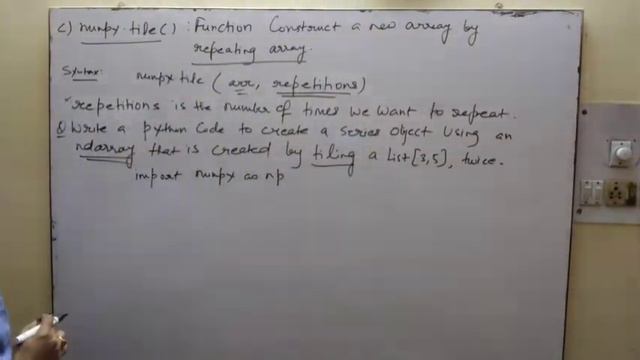 c) numpy.tile() : Function Construct a new array by
repeating array.
Syntax: numpy tile (arr, repetitions)
repetitions is the number of times we want to repeat.
Q Write a python Code to create a Series object Using an
ndarray that is created by tiling a List [3,5], twice.
import numpy as np